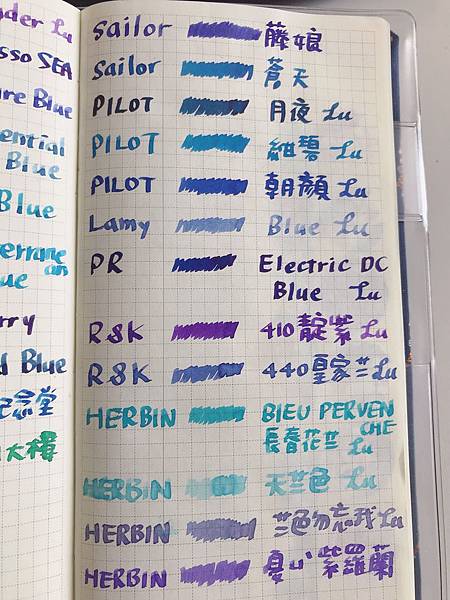 nder Lu
sso SEA
re Blue
ential
Blue
Blue
errane
an
ue
rry
d Blue
念堂
大樓
Sailor 藤娘
Sailor 蒼天
PILOT 月夜 Lu
PILOT 紺碧 Lu
PILOT 朝顏 Lu
Lamy Blue Lu
PR Electric DC
Blue Lu
R&K 410 靛紫 Lu
R&K 440 皇家兰 Lu
HERBIN BIEU PERVEN
CHE
長春花兰 Lu
HERBIN 天兰色 Lu
HERBIN 兰色勿忘我 Lu
HERBIN 紫羅蘭